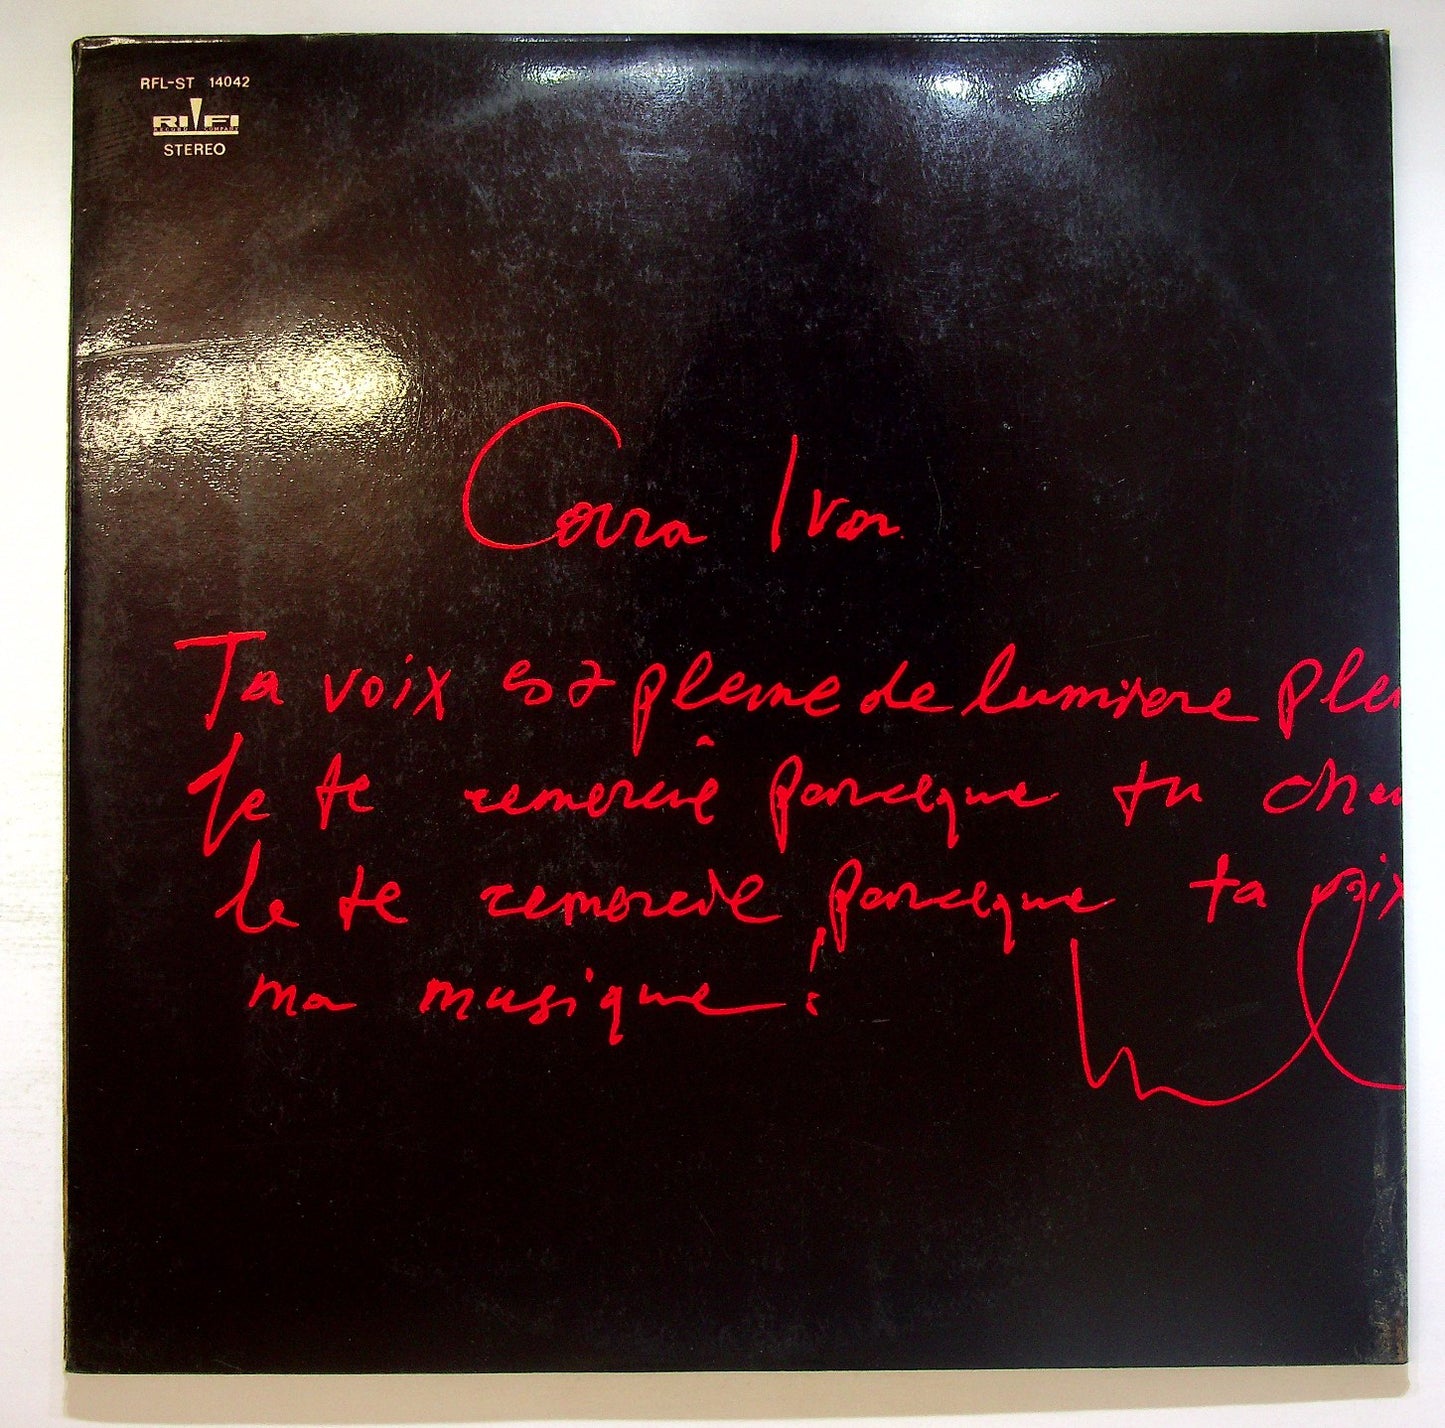 RFL-ST 14042
RIFI
RECORD COMPANY
STEREO
Cara Iva
Ta voix est pleine de lumiere plei
Je te remercie parceque tu chan
Je te remercie parceque ta voix
ma musique!